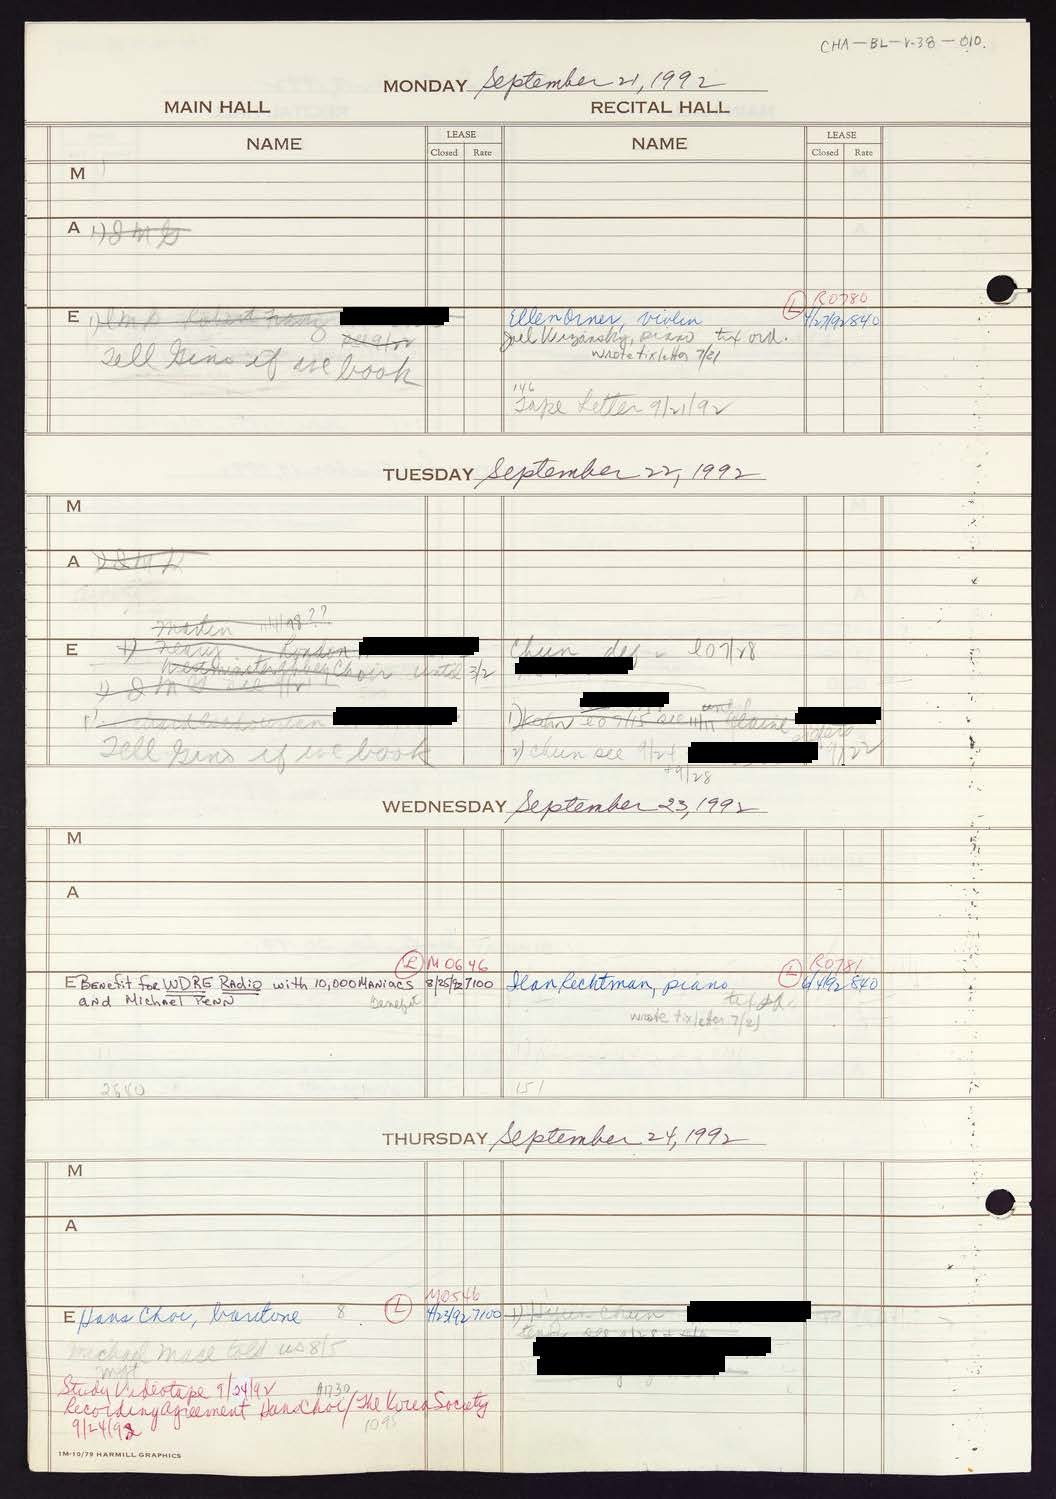 CHA-BL-V-38-010.
MONDAY September 21, 1992
MAIN HALL RECITAL HALL
NAME LEASE NAME LEASE
Closed Rate Closed Rate
M
A 1) I M G
R0780
E 1) Ellen Orner, violin L 4/27/92 840
see 9/22 piano tix ord.
Tell Gino if we book wrote tix letter 7/21
146
Tape Letter 9/21/92
TUESDAY September 22, 1992
M
A
11/98??
E 1) London Chun def - 7/28
Westminster Abbey Choir until 3/2
1) I M G see
1) 1) Kahn see 11/11 Elaine
Tell Gino if we book 2) Chun see 9/24 9/22
+9/28
WEDNESDAY September 23, 1992
M
A
L M0646 L R0781
E Benefit for WDRE Radio with 10,000 Maniacs 8/25/92 7100 Ilan Rechtman, piano 6/4/92 840
and Michael Penn Benefit
wrote tix letter 7/21
2880 151
THURSDAY September 24, 1992
M
A
M0546
E Hans Choi, baritone 8 L 4/23/92 7100 1) Hyun Chun
Michael Mace told us 8/5
Study Videotape 9/24/92 A1730
Recording Agreement Hans Choi/The Korea Society
9/24/92 1095
1M-10/79 HARMILL GRAPHICS